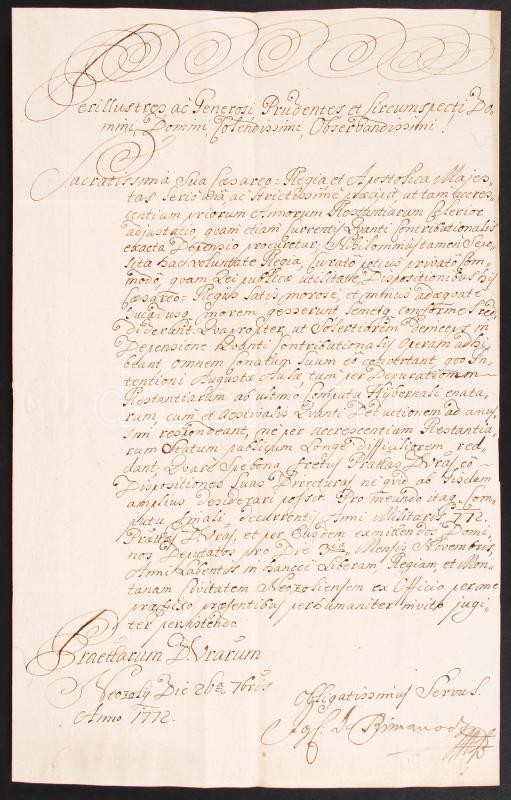 Perillustres ac Generosi, Prudentes et Circumspecti, Do-
mini, Domini, Colendissimi, Observandissimi!
Sacratissima Sua Caesareo-Regia et Apostolica Majes-
tas serio ac strictissime praecipit, ut tam accres-
centium priorum Annorum Restantiarum celerior
adjustatio, quam etiam currentis Quanti Contributionalis
exacta Depensio procuretur; Nihilominus tamen Sepo-
sita hac voluntate Regia, Curato potius privato Com-
modo, quam Rei publicae utilitate, Dispositionibus his
Caesareo-Regiis satis morose, et minus adaequate
hucadusq morem gesserunt semetq conformes red-
diderunt. Quapropter, ut Solertiorem Demceps in
Depensione Quanti Contributionalis Operam adhi-
beant omnem Conatum Suum eo convertant, quo In-
tentioni Augustae Aulae tum per Depurationem
Restantiarum ab ultimo Computu Hybernali enata-
rum, cum et Aestivalis Quanti Deductionem ad amus-
sim respondeant, ne per accrescentiam Restantia-
rum Statum publicum Longe Difficiliorem red-
dant; Quare Spe bona fretus Praettas D. Vras, eo
Dispositiones Suas Directuras, ne quid ab Iisdem
amplius desiderari possit. Pro ineundo itaq Com-
putu decurrentis Anni Militaris 772.
Praettas D. Vras, et per Easdem exmittendos Domi-
nos Deputatos pro Die 3tia Mensis Novembris,
Anni Labentis in hancce Liberam Regiam et Mon-
tanam Civitatem Neozoliensem ex Officio per me
praefixo praesentibus perhumaniter invito jugi-
ter persistendo
Praettarum D. Vrarum
Neozoly Die 26a 7bris
Anno 1772.
Obligatissimus Servus.